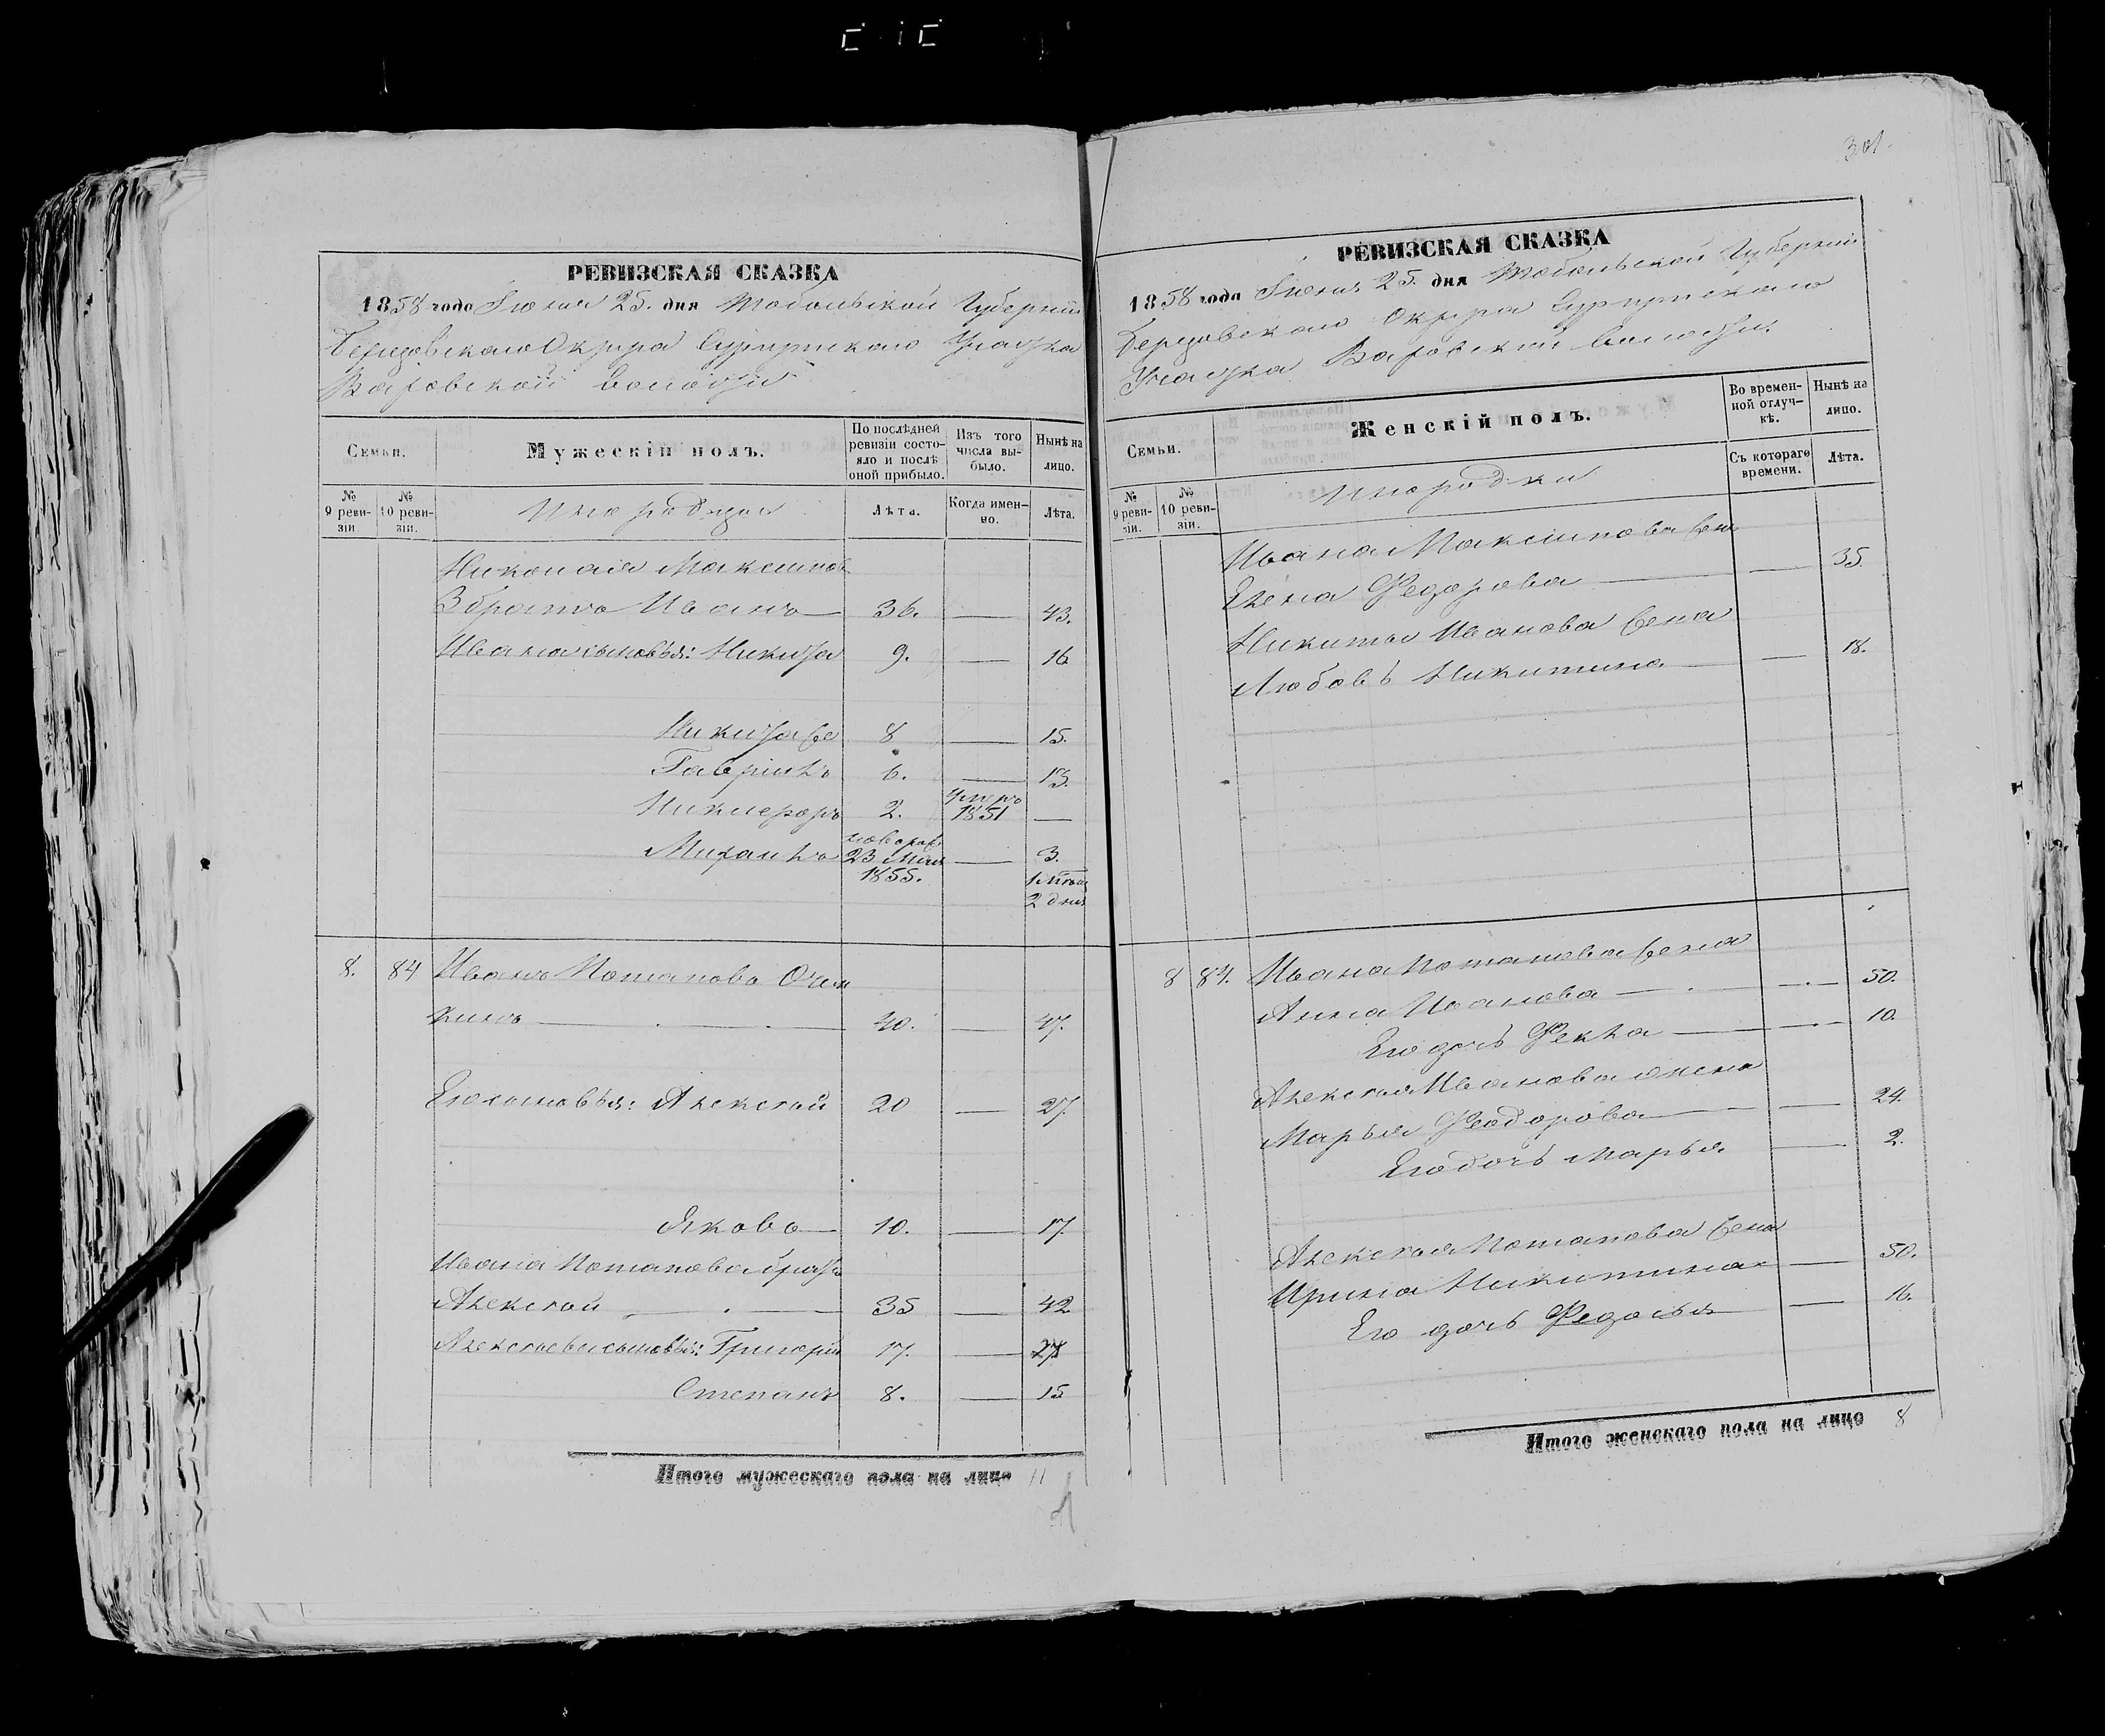 301.
РЕВИЗСКАЯ СКАЗКА
1858 года Іюня 25. дня Тобольской Губерніи
Березовскаго Округа Сургутскаго Участка
Ваховской волости
Семьи.
Мужескій полъ.
По послѣдней ревизіи состояло и послѣ оной прибыло.
Изъ того числа выбыло.
Нынѣ на лицо.
№ 9 ревизіи.
№ 10 ревизіи.
Инородцы
Лѣта.
Когда именно.
Лѣта.
Николая Максимова
3 братъ Иванъ 36. — 43.
Ивана сыновья: Никита 9. — 16
Никита 8 — 15.
Гаврилъ 6. — 13.
Никифоръ 2. умеръ 1851 —
Михаилъ
23 Мая — 3.
1855.
2 дня
8. 84 Иванъ Потаповъ
кинъ — 40. — 47.
Его сыновья: Алексѣй 20 — 27.
Яковъ — 10. — 17.
Ивана Потапова братъ
Алексѣй — 35 — 42
Алексѣева сыновья: Григорій 17. —
Степанъ 8. — 15
Итого мужескаго пола на лицо 11
РЕВИЗСКАЯ СКАЗКА
1858 года Іюня 25. дня Тобольской Губерніи
Березовскаго Округа Сургутскаго
Участка Ваховской волости.
Семьи.
Женскій полъ.
Во временной отлучкѣ.
Нынѣ на лицо.
№ 9 ревизіи.
№ 10 ревизіи.
Инородки
Съ котораго времени.
Лѣта.
Ивана Максимова жена
Елена Федорова — 35.
Никиты Иванова жена
Любовь Никитина — 18.
8 84. Ивана Потапова жена
Анна Иванова — 50.
Его дочь Фекла — 10.
Алексѣя Иванова жена
Марья Феодорова — 24.
Его дочь Марья — 2.
Алексѣя Потапова жена
Ирина Никитина — 50.
Его дочь Федосья — 16.
Итого женскаго пола на лицо 8